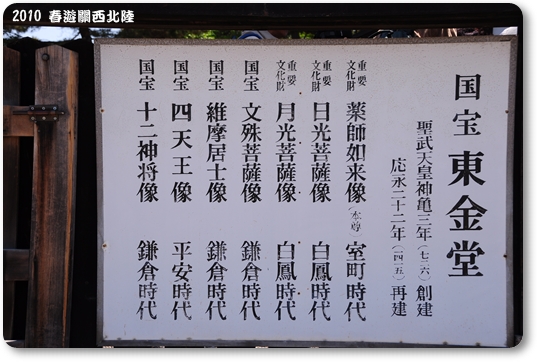 2010 春遊關西北陸
国宝 東金堂
聖武天皇神亀三年(七二六)創建
応永二十二年(一四一五)再建
重要文化財 薬師如来像(本尊) 室町時代
重要文化財 日光菩薩像 白鳳時代
重要文化財 月光菩薩像 白鳳時代
国宝 文殊菩薩像 鎌倉時代
国宝 維摩居士像 鎌倉時代
国宝 四天王像 平安時代
国宝 十二神将像 鎌倉時代